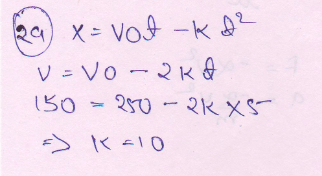 29 x = V0t - Kt²
V = V0 - 2Kt
150 = 250 - 2K×5
⇒ K = 10